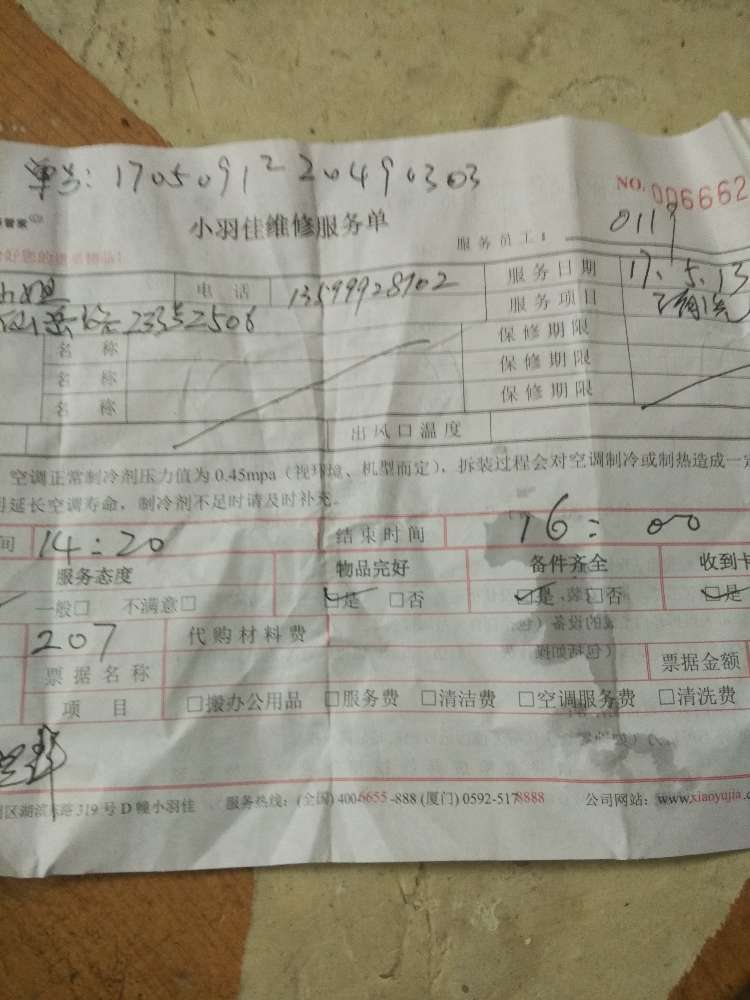 单号: 17050912220490303
NO. 006662
小羽佳维修服务单
服务员工: 0119
电话 13599928102 服务日期 17.5.13
23352506 服务项目
名称 保修期限
名称 保修期限
名称 保修期限
出风口温度
空调正常制冷剂压力值为 0.45mpa（视环境、机型而定），拆装过程会对空调制冷或制热造成一定
延长空调寿命，制冷剂不足时请及时补充。
间 14:20 结束时间 16:00
服务态度 物品完好 备件齐全 收到卡
一般□ 不满意□ □是 □否 □是 □否 □是
207 代购材料费
票据名称 票据金额
项目 □搬办公用品 □服务费 □清洁费 □空调服务费 □清洗费
区湖滨东路 319 号 D 幢小羽佳 服务热线: (全国) 400-6655-888 (厦门) 0592-5178888 公司网站: www.xiaoyujia.c